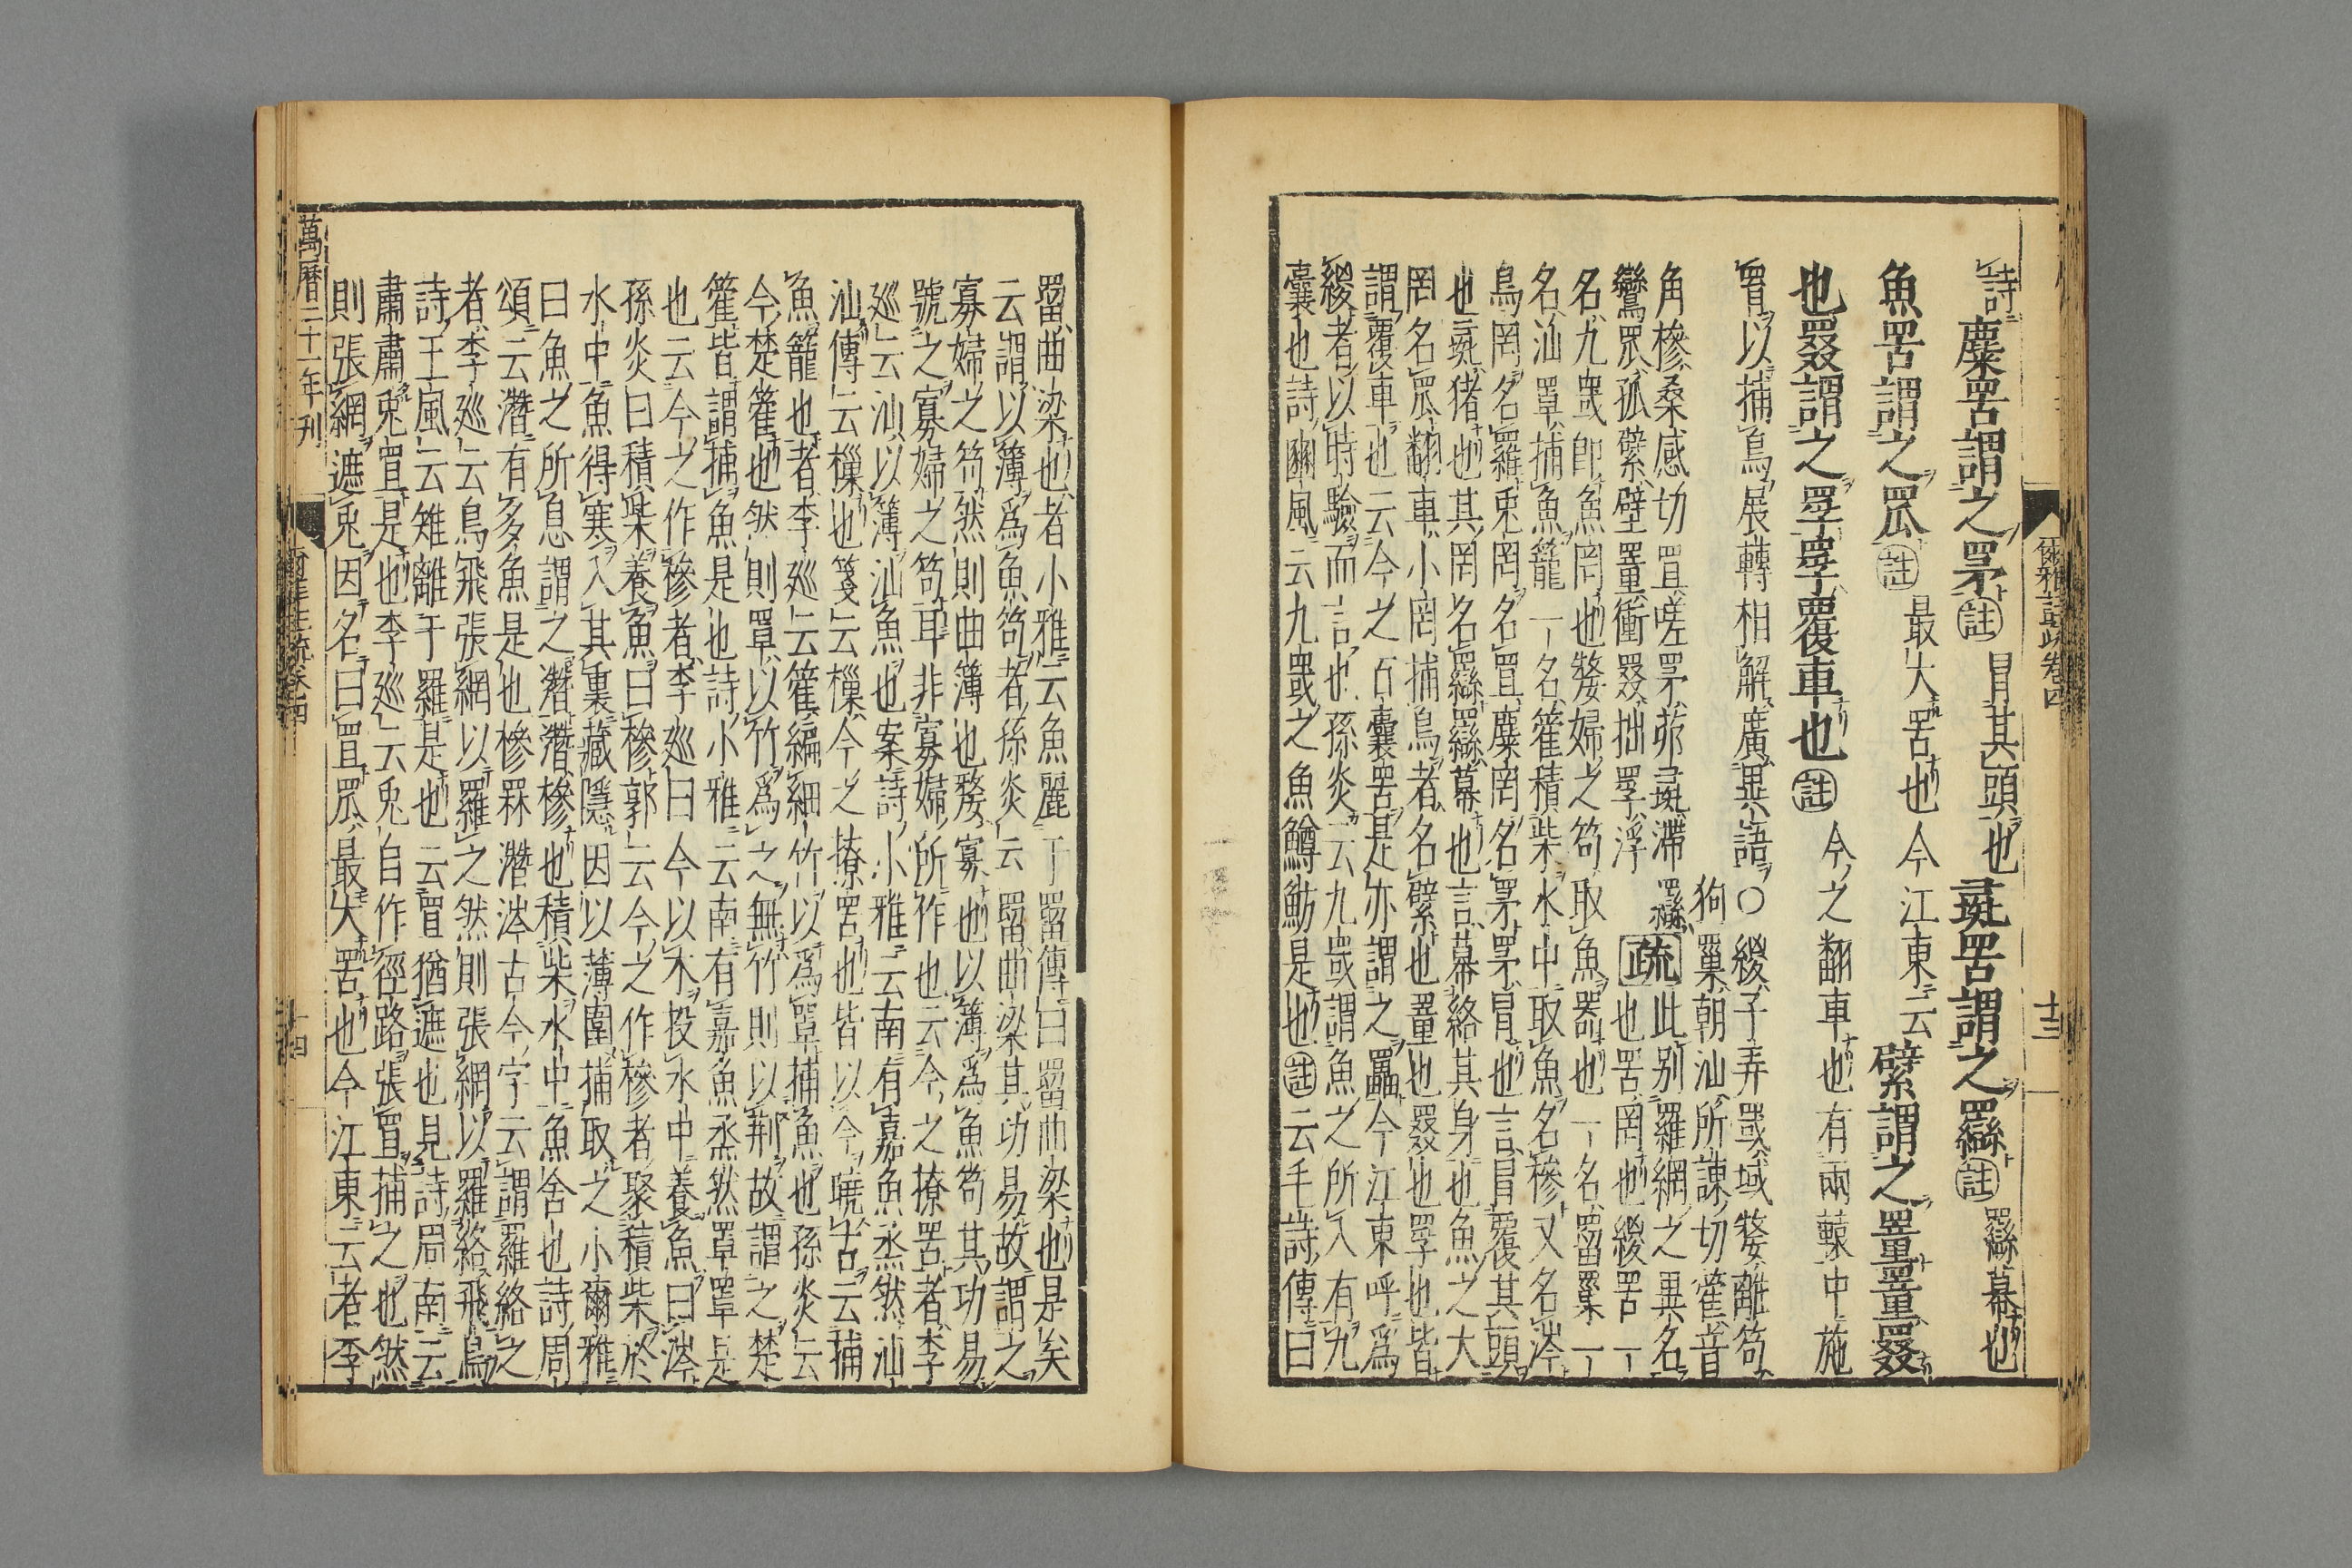 爾雅註疏卷四 十三
詩麋罟謂之罞註冒其頭也彘罟謂之羉註羉幕也
魚罟謂之罛註最大罟也今江東云繴謂之罿罿罬
也罬謂之罦罦覆車也註今之翻車也有兩轅中施
罥以捕鳥展轉相解廣異語○緵子弄罭域嫠離笱
狗罺朝汕所諫切篧音
角椮桑感切罝嗟罞茆彘滯羉
鸞罛孤繴壁罿衝罬拙罦浮
疏此别羅網之異名
也罟罔也緵罟一
名九罭即魚罔也嫠婦之笱取魚器也一名罶罺一
名汕罩捕魚籠一名篧積柴水中取魚名椮又名涔
鳥罔名羅兔罔名罝麋罔名罞罞冒也言冒覆其頭
也彘猪也其罔名羉羉幕也言幕絡其身也魚之大
罔名罛翻車小罔捕鳥者名繴也罿也罬也罦也皆
謂覆車也云今之百囊罟是亦謂之䍡今江東呼爲
緵者以時驗而言也孫炎云九罭謂魚之所入有九
囊也詩豳風云九罭之魚鱒魴是也註云毛詩傳曰
罶曲梁也者小雅云魚麗于罶傳曰罶曲梁也是矣
云謂以簿爲魚笱者孫炎云罶曲梁其功易故謂之
寡婦之笱然則曲簿也嫠寡也以簿爲魚笱其功易
號之寡婦之笱耳非寡婦所作也云今之撩罟者李
廵云汕以簿汕魚也案詩小雅云南有嘉魚烝然汕
汕傳云樔也箋云樔今之撩罟也皆以今曉古云捕
魚籠也者李廵云篧編細竹以爲罩捕魚也孫炎云
今楚篧也然則罩以竹爲之無竹則以荆故謂之楚
篧皆謂捕魚是也詩小雅云南有嘉魚烝然罩罩是
也云今之作椮者李廵曰今以木投水中養魚曰涔
孫炎曰積柴養魚曰椮郭云今之作椮者聚積柴於
水中魚得寒入其裏藏隱因以薄圍捕取之小爾雅
曰魚之所息謂之潛潛椮也積柴水中魚舍也詩周
頌云潛有多魚是也椮罧潛涔古今字云謂羅絡之
者李廵云鳥飛張網以羅之然則張網以羅絡飛鳥
詩王風云雉離于羅是也云冒猶遮也見詩周南云
肅肅兔罝是也李廵云兔自作徑路張罝捕之也然
則張網遮兔因名曰罝罛最大罟也今江東云者李
萬曆二十一年刊 爾雅註疏卷四 十四